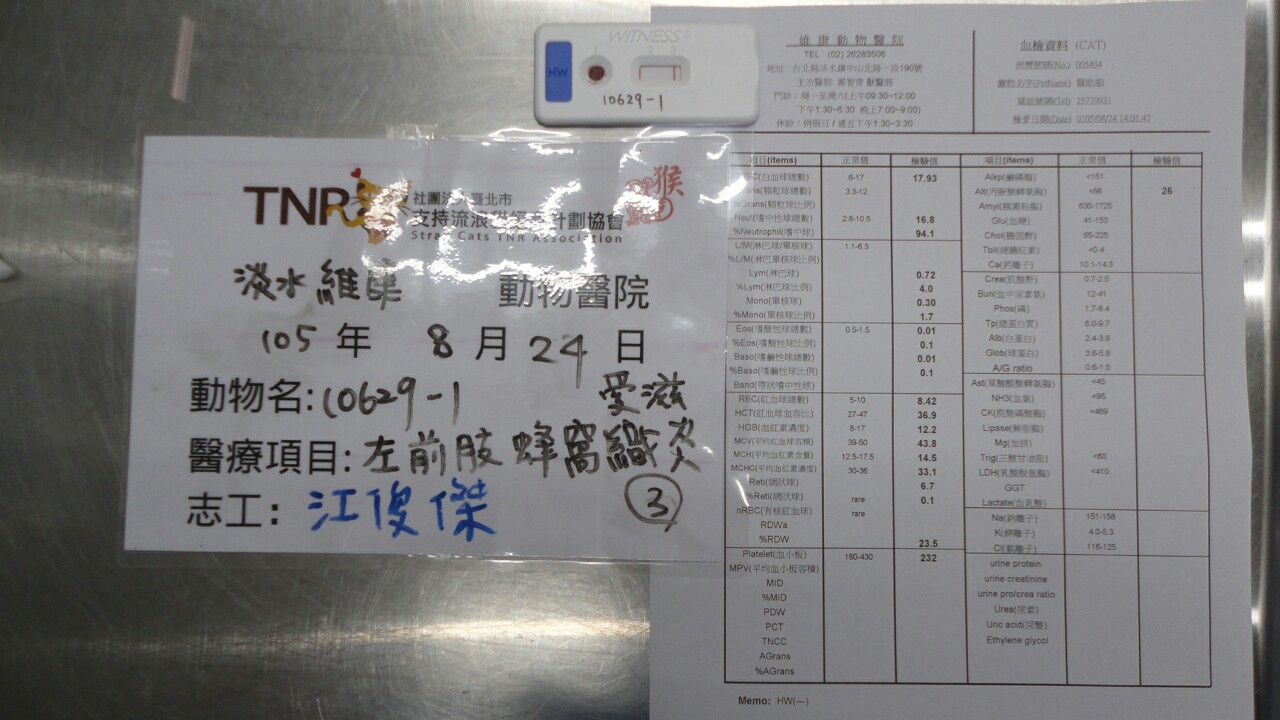 WITNESS
HW
1 2 3
10629-1
TNR
社團法人臺北市
支持流浪貓絕育計劃協會
Stray Cats TNR Association
猴
淡水維康 動物醫院
105 年 8 月 24 日
動物名:10629-1 愛滋
醫療項目:左前肢蜂窩織炎
志工:江俊傑 ③
維康動物醫院
TEL (02) 26283506
地址:台北縣淡水鎮中山北路一段190號
門診:周一至周六(上午09:30~12:00
下午1:30~6:30 晚上7:00~9:00)
休診:例假日/週五下午1:30~3:30
血檢資料 (CAT)
病歷號碼(No.) 005494
寵物名字(PetName)
電話號碼(Tel) 25779031
檢查日期(Date) 0105/08/24 14:01:47
項目(items) 正常值 檢驗值 項目(items) 正常值 檢驗值
(白血球總數) 6-17 17.93 Alkp(鹼磷酶) <151
(顆粒球總數) 3.3-12 Alt(丙胺酸轉氨酶) <86 26
%Grans(顆粒球比例) Amyl(胰澱粉酶) 630-1725
Neu(嗜中性球總數) 2.8-10.5 16.8 Glu(血糖) 41-153
%Neutrophil(嗜中球) 94.1 Chol(膽固醇) 65-225
L/M(淋巴球/單核球) 1.1-6.3 Tbil(總膽紅素) <0.4
%L/M(淋巴單核球比例) Ca(鈣離子) 10.1-14.3
Lym(淋巴球) 0.72 Crea(肌酸酐) 0.7-2.5
%Lym(淋巴球比例) 4.0 Bun(血中尿素氮) 12-41
Mono(單核球) 0.30 Phos(磷) 1.7-8.4
%Mono(單核球比例) 1.7 Tp(總蛋白質) 6.0-9.7
Eos(嗜酸性球總數) 0.5-1.5 0.01 Alb(白蛋白) 2.4-3.9
%Eos(嗜酸性球比例) 0.1 Glob(球蛋白) 3.6-5.8
Baso(嗜鹼性球總數) 0.01 A/G ratio 0.6-1.5
%Baso(嗜鹼性球比例) 0.1 Ast(草酸醋酸轉氨酶) <45
Band(帶狀嗜中性球) NH3(血氨) <95
RBC(紅血球總數) 5-10 8.42 CK(肌酸磷酸酶) <469
HCT(紅血球血容比) 27-47 36.9 Lipase(解脂酶)
HGB(血紅素濃度) 8-17 12.2 Mg(血鎂)
MCV(平均紅血球容積) 39-50 43.8 Trig(三酸甘油脂) <60
MCH(平均紅血素含量) 12.5-17.5 14.5 LDH(乳酸脫氫酶) <410
MCHC(平均血紅素濃度) 30-36 33.1 GGT
Reti(網狀球) 6.7 Lactate(血乳酸)
%Reti(網狀球) rare 0.1 Na(鈉離子) 151-158
nRBC(有核紅血球) rare K(鉀離子) 4.0-5.3
RDWa Cl(氯離子) 116-125
%RDW 23.5 urine protein
Platelet(血小板) 180-430 232 urine creatinine
MPV(平均血小板容積) urine pro/crea ratio
MID Urea(尿素)
%MID Uric acid(尿酸)
PDW Ethylene glycol
PCT
TNCC
AGrans
%AGrans
Memo: HW(—)